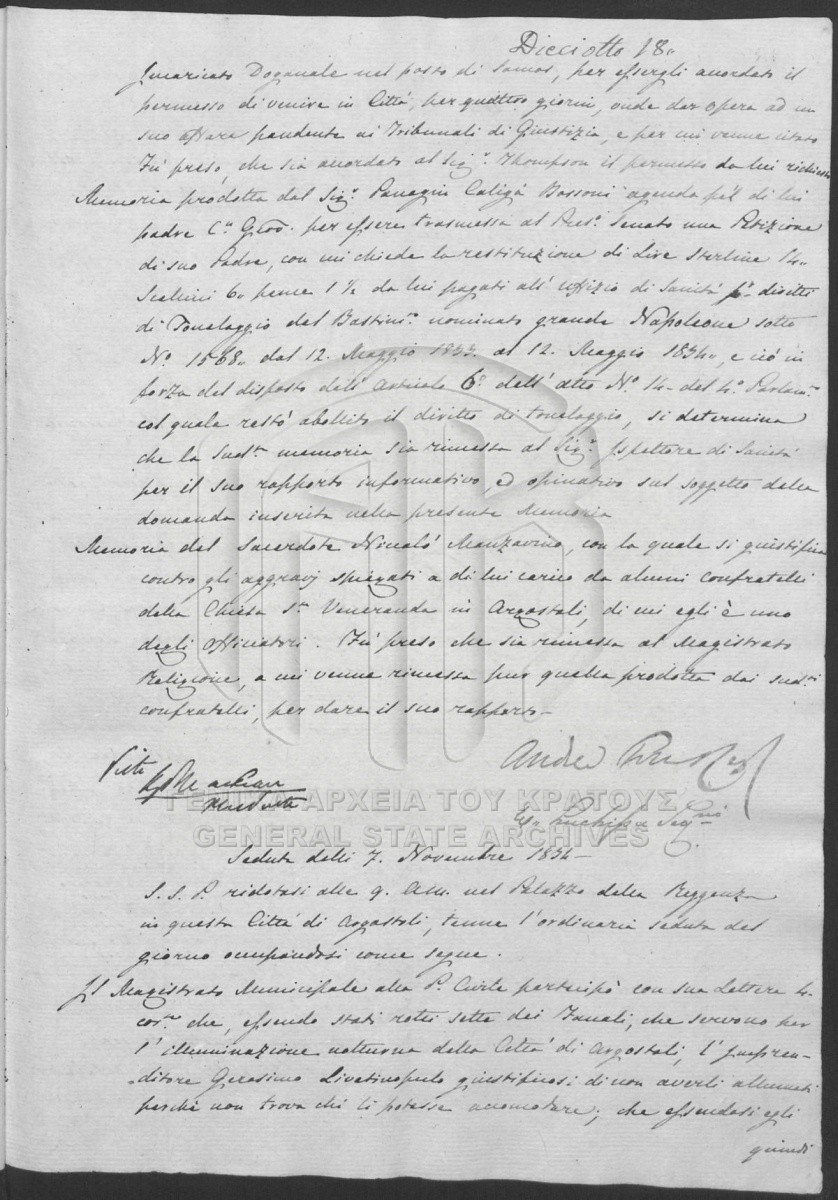 Dicciotto 18„
Incaricato Doganale nel posto di Samos, per essergli accordato il
permesso di venire in Città, per quattro giorni, onde dar opera ad un
suo affare pendente ai Tribunali di Giustizia, e per cui venne citato
Fù preso, che sia accordato al Sig.r Thompson il permesso da lui richiesto
Memoria prodotta dal Sig.r Panagin Caligà Bassoni agenda p'l di lui
padre C.n Giov. per essere trasmessa al Pres.o Senato una Petizione
di suo Padre, con cui chiede la restituzione di Lire Sterline 14„
Scellini 6„ pence 1 ½ da lui pagati all' uffizio di Sanità p.r diritti
di Tonelaggio del Bastim.o nominato grande Napoleone sotto
N.o 1568„ dal 12. Maggio 1833. al 12. Maggio 1834„, e ciò in
forza del disposto dell' Articolo 6.o dell' atto N.o 14- del 4.o Parlam.o
col quale restò abollito il diritto di tonelaggio, si determina
che la Sud.ta memoria sia rimessa al Sig.r Ispettore di Sanità
per il suo rapporto informativo, ed opinativo sul soggetto della
domanda inserita nella presente Memoria
Memoria del Sacerdote Nicalò Manzavino, con la quale si giustifica
contro gli aggravj spiegati a di lui carico da alcuni confratelli
della Chiesa S.ta Veneranda in Argostoli, di cui egli è uno
degli officiatori. Fù preso che sia rimessa al Magistrato
Religione, a cui venne rimessa pur quella prodotta dai sud.ti
confratelli, per dare il suo rapporto-
Visto
Andrea
ΓΕΝΙΚΑ ΑΡΧΕΙΑ ΤΟΥ ΚΡΑΤΟΥΣ
GENERAL STATE ARCHIVES
Seduta delli 7. Novembre 1834-
S. S. P. ridotasi alle 9. AM. nel Palazzo della Reggenza
in questa Città di Argostoli, tenne l'ordinaria seduta del
giorno occupandosi come segue.
Il Magistrato Municipale alla P. Civile partecipò con sua Lettera 4-
cor.te che, essendo stati rotti sette dei Fanali, che servono per
l'illuminazione notturna della Città di Argostoli, l'Impren-
ditore Gerasimo Livatinopulo giustificosi di non averli allumati
perchè non trova chi li potesse accomodare; che essendosi egli
quindi